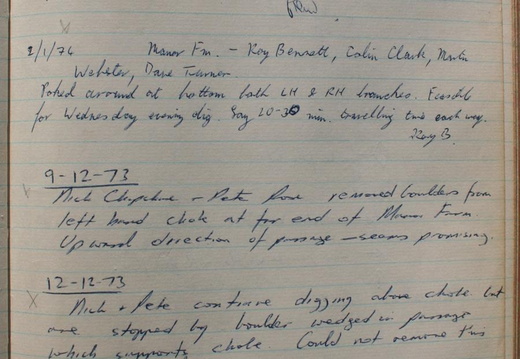 2/1/74 Manor Fm. - Roy Bennett, Colin Clark, Martin
Webster, Dave Turner
Poked around at bottom both LH & RH branches. Feasible
for Wednesday evening dig. Say 20-30 min. travelling time each way.
Roy B.
9-12-73
Nich Chipchase + Pete Rose removed boulders from
left hand choke at far end of Manor Farm
Upward direction of passage - seems promising.
12-12-73
Nich + Pete continue digging above choke but
are stopped by boulder wedged in passage
which supports choke. Could not remove this